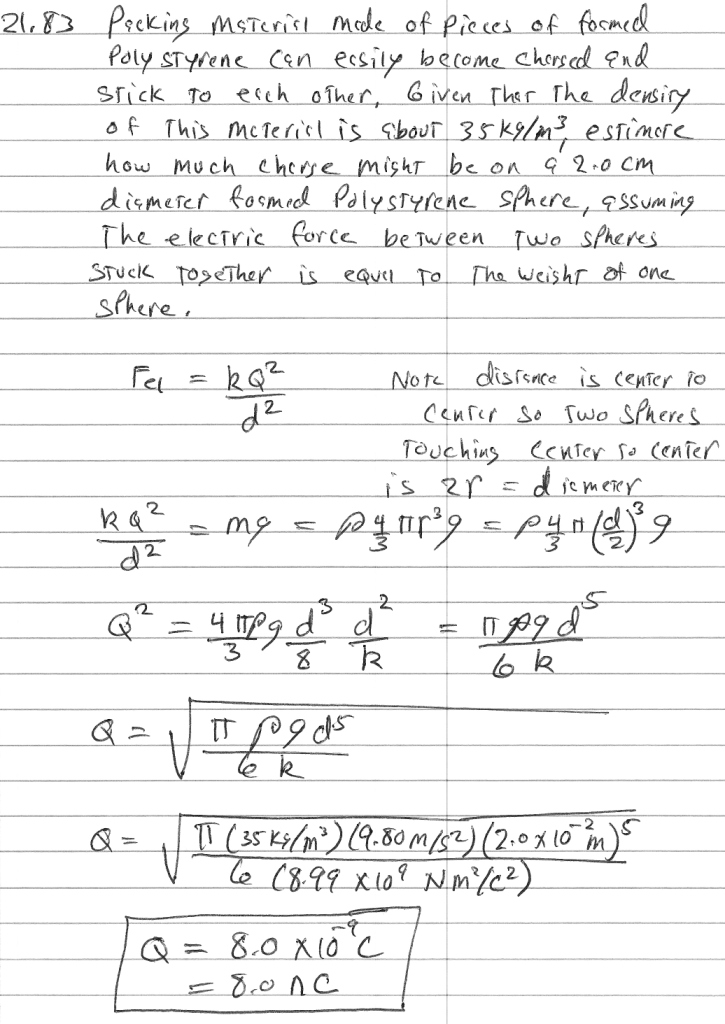 21.83 Packing material made of pieces of foamed
Polystyrene can easily become charged and
stick to each other. Given that the density
of this material is about 35 kg/m³, estimate
how much charge might be on a 2.0 cm
diameter foamed Polystyrene sphere, assuming
the electric force between two spheres
stuck together is equal to the weight of one
sphere.
Fel = kQ²/d²
Note distance is center to
center so two spheres
touching center to center
is 2r = diameter
kQ²/d² = mg = ρ 4/3 πr³g = ρ 4/3 π (d/2)³ g
Q² = 4πρg/3 d³/8 d²/k = πρgd⁵/6k
Q = √(πρgd⁵/6k)
Q = √(π(35 kg/m³)(9.80 m/s²)(2.0 x 10⁻² m)⁵/6(8.99 x 10⁹ Nm²/C²))
Q = 8.0 x 10⁻⁹ C
= 8.0 nC